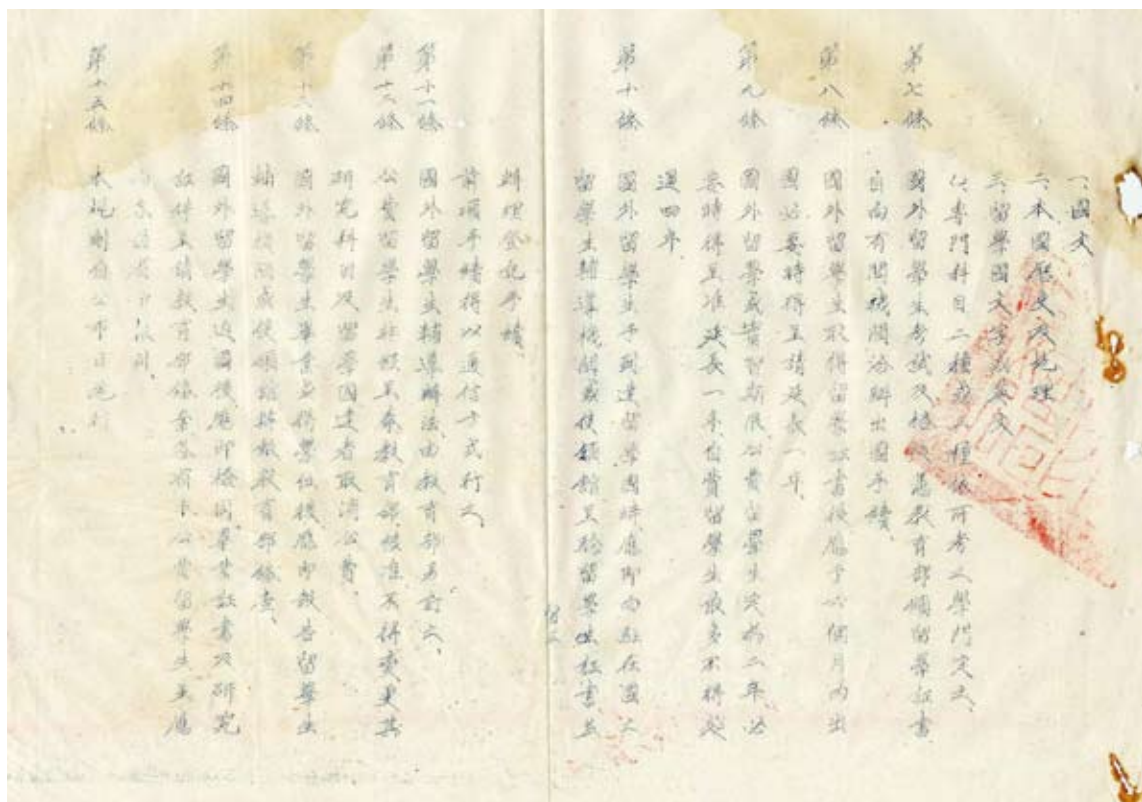 一、國文
二、本國歷史及地理
三、留學國文字或英文
專門科目二種或三種依所考之學門定之、
第七條 國外留學生考試及格後憑教育部頒留學証書
自向有關機關洽辦出國手續、
第八條 國外留學生取得留學証書後應于六個月內出
國必要時得呈請延長一年、
第九條 國外留學或實習期限公費留學生定為二年必
要時得呈准延長一年、自費留學生最多不得超
過四年
第十條 國外留學生于到達留學國時應即向駐在國之
留學生輔導機關或使領館呈驗留學生証書並
辦理登記手續、
前項手續得以通信方式行之、
第十一條 國外留學生輔導辦法由教育部另訂之、
第十二條 公費留學生非經呈奉教育部核准不得變更其
研究科目及留學國違者取消公費、
第十三條 國外留學生畢業並得學位後應即報告留學生
輔導機關或使領館轉報教育部備查、
第十四條 國外留學生返國後應即檢同畢業証書及研究
証件呈請教育部備案 公費留學生並應
第十五條 本規則自公布日施行